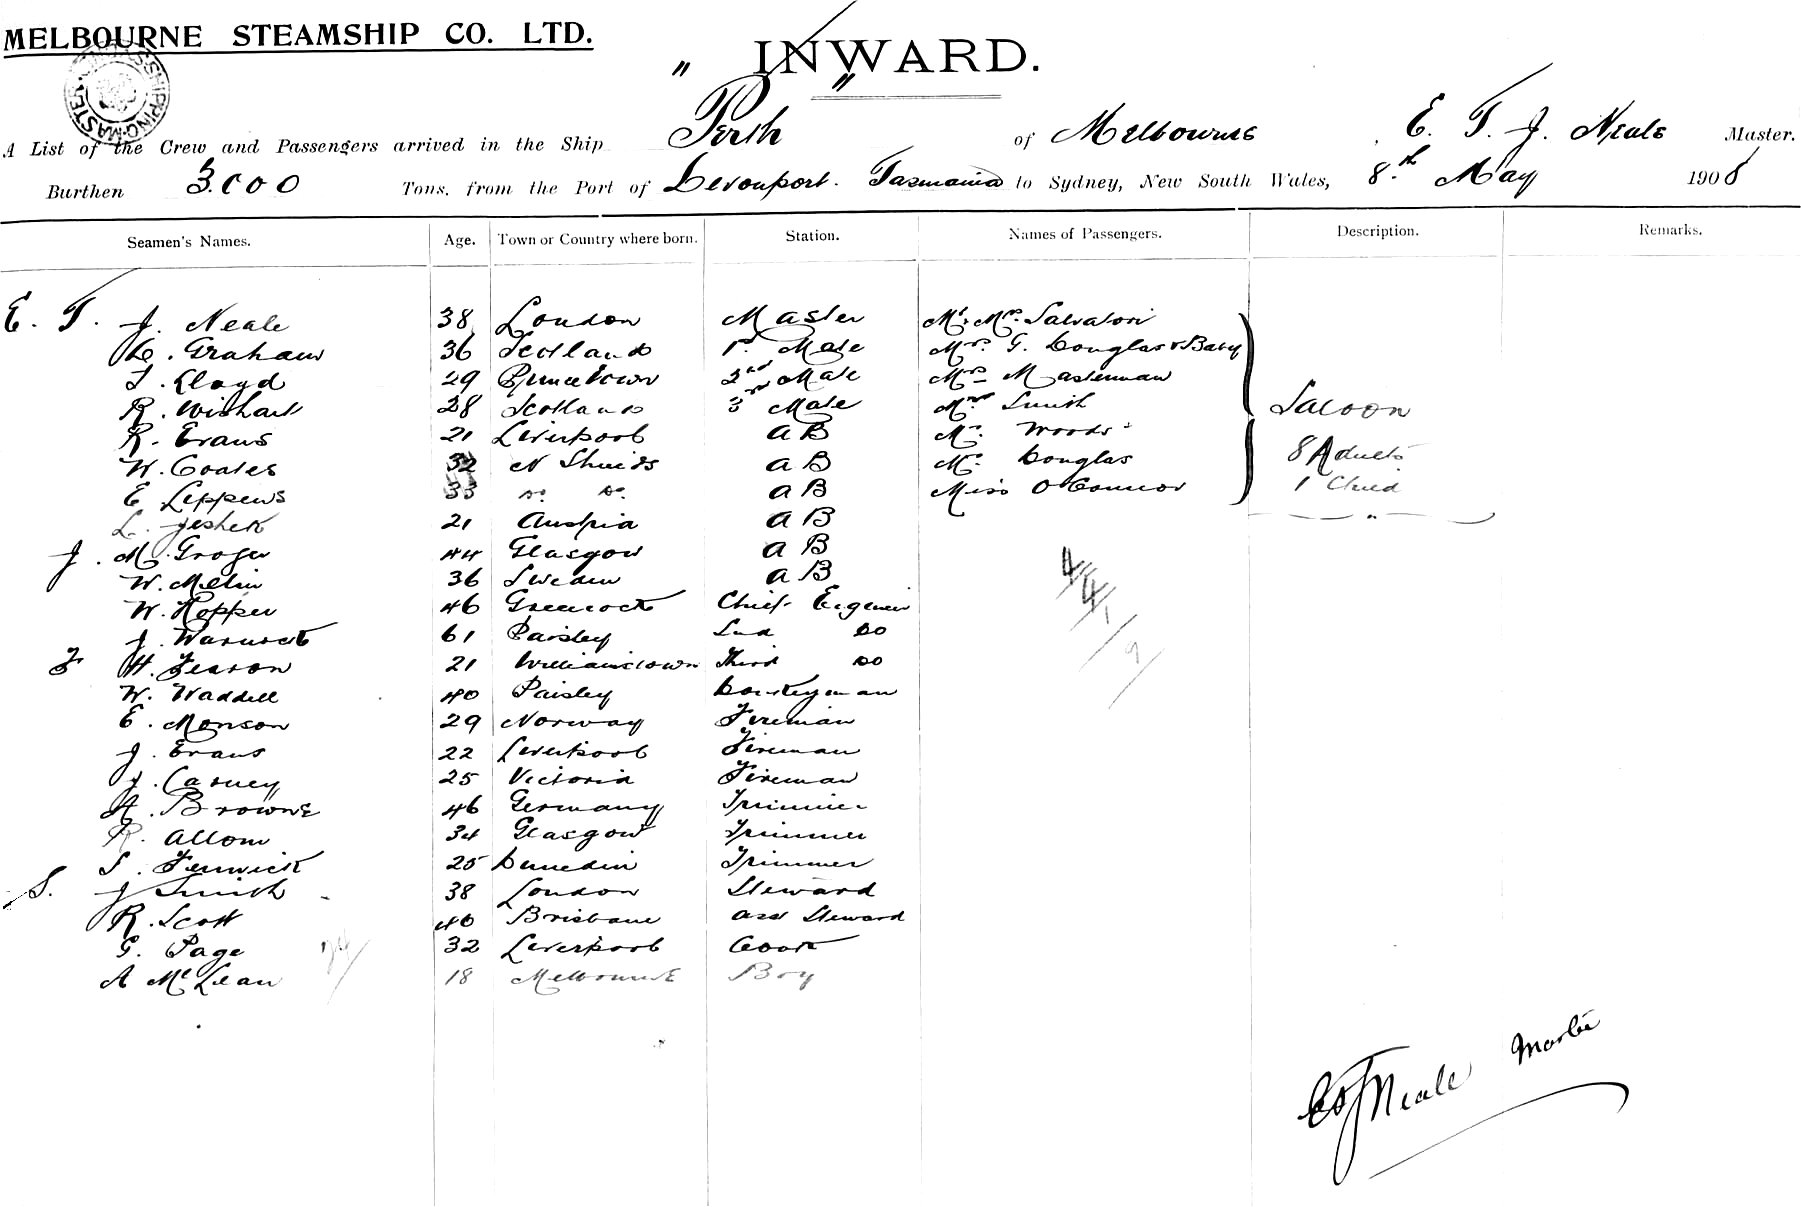 MELBOURNE STEAMSHIP CO. LTD.
INWARD.
SHIPPING MASTER
A List of the Crew and Passengers arrived in the Ship " Perth " of Melbourne, E. T. J. Neale Master.
Burthen 3.000 Tons, from the Port of Devonport. Tasmania to Sydney, New South Wales, 8.th May 1908
Seamen's Names. Age. Town or Country where born. Station. Names of Passengers. Description. Remarks.
E. T. J. Neale 38 London Master Mr. Mrs. Salvatori
D. Graham 36 Scotland 1st. Mate Mrs. G. Douglas & Baby
T. Lloyd 29 Princetown 2nd Mate Mrs Masterman
R. Wishart 28 Scotland 3rd Mate Mrs Smith Saloon
R. Evans 21 Liverpool AB Mr. Woods
W. Coates 32 N Shields AB Mr. Douglas 8 Adults
E Leppens 33 Do. Do. AB Miss O'Connor 1 Child
L. 21 Austria AB
J. M. 44 Glasgow AB
W. Melin 36 Sweden AB
W. Hopper 46 Greenock Chief Engineer
J. Warnock 61 Paisley 2nd DO
F H. Fearon 21 Williamstown Third DO
W. Waddell 40 Paisley Donkeyman
E. Monson 29 Norway Fireman
J. Evans 22 Liverpool Fireman
J. Carney 25 Victoria Fireman
A. Browne 46 Germany Trimmer
R. Allom 34 Glasgow Trimmer
S. Fenwick 25 Dunedin Trimmer
S. J Smith 38 London Steward
R. Scott 40 Brisbane Asst Steward
G. Page 32 Liverpool Cook
A McLean 18 Melbourne Boy
24/
ETJ Neale Master